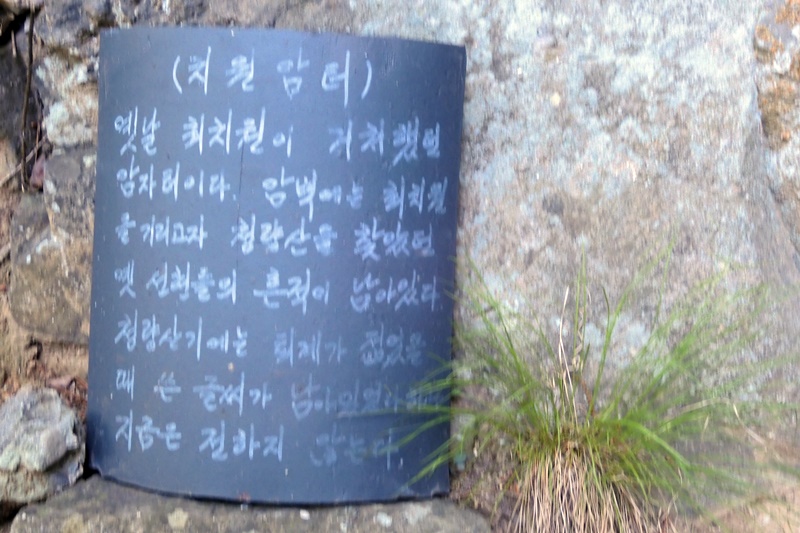 (치원암터)
옛날 최치원이 거처했던
암자터이다. 암벽에는 최치원
을 기리고자 청량산을 찾았던
옛 선현들의 흔적이 남아있다.
청량산기에는 퇴계가 젊었을
때 쓴 글씨가
지금은 전하지 않는다.